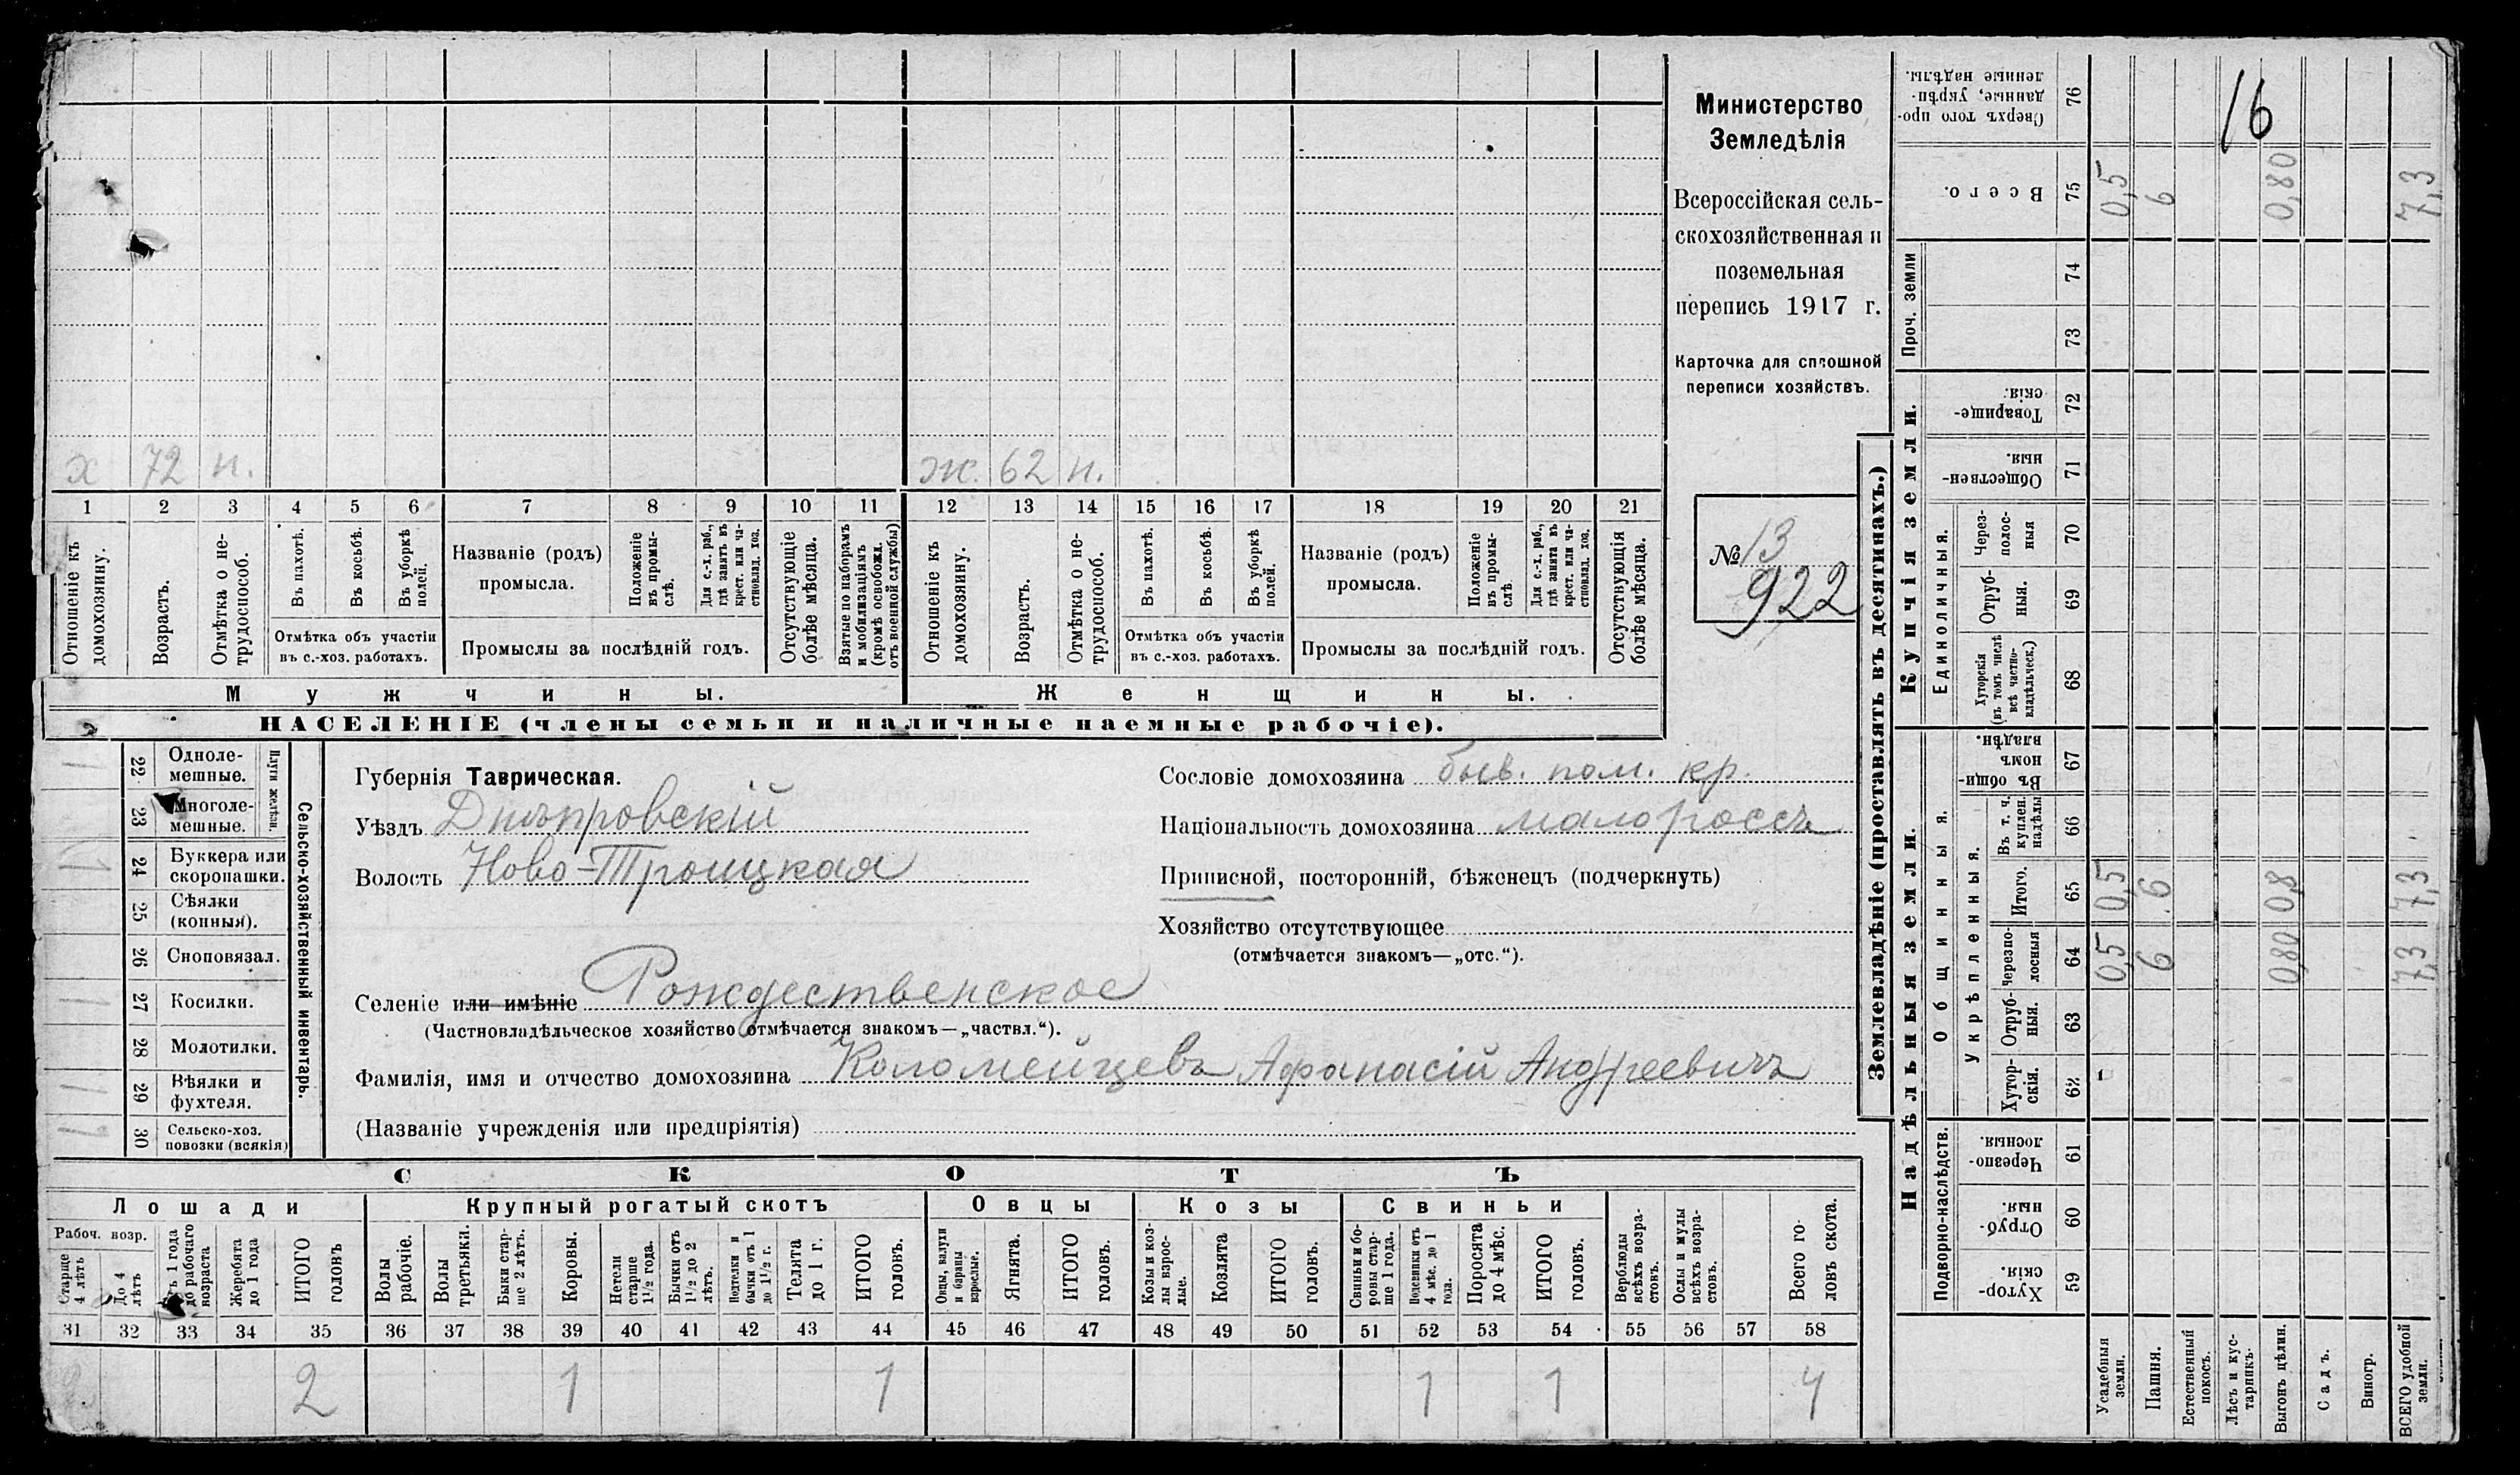 Министерство
Земледѣлія
Всероссійская сель-
скохозяйственная и
поземельная
перепись 1917 г.
Карточка для сплошной
переписи хозяйствъ.
№ 13
922
х 72 н.
ж. 62 н.
1 2 3 4 5 6 7 8 9 10 11 12 13 14 15 16 17 18 19 20 21
Отношеніе къ домохозяину.
Возрастъ.
Отмѣтка о не-
трудоспособ.
Въ пахотѣ.
Въ косьбѣ.
Въ уборкѣ полей.
Отмѣтка объ участіи
въ с.-хоз. работахъ.
Названіе (родъ)
промысла.
Положеніе
въ промы-
слѣ.
Для с.-х. раб.,
гдѣ занятъ въ
крест. или ча-
стновлад. хоз.
Промыслы за послѣдній годъ.
Отсутствующіе
болѣе мѣсяца.
Взятые по наборамъ
и мобилизаціямъ
(кромѣ освобожд.
отъ военной службы)
Отношеніе къ
домохозяину.
Возрастъ.
Отмѣтка о не-
трудоспособ.
Въ пахотѣ.
Въ косьбѣ.
Въ уборкѣ
полей.
Отмѣтка объ участіи
въ с.-хоз. работахъ.
Названіе (родъ)
промысла.
Положеніе
въ промы-
слѣ.
Для с.-х. раб.,
гдѣ занята въ
крест. или ча-
стновлад. хоз.
Промыслы за послѣдній годъ.
Отсутствующія
болѣе мѣсяца.
Мужчины.
Женщины.
НАСЕЛЕНІЕ (члены семьи и наличные наемные рабочіе).
Сельско-хозяйственный инвентарь.
Плуги желѣзн.
22 Одноле-
мешные.
23 Многоле-
мешные.
24 Буккера или
скоропашки.
25 Сѣялки
(конныя).
26 Сноповязал.
27 Косилки.
28 Молотилки.
29 Вѣялки и
фухтеля.
30 Сельско-хоз.
повозки (всякія)
Губернія Таврическая.
Уѣздъ Днѣпровскій
Волость Ново-Троицкая
Сословіе домохозяина быв. пом. кр.
Національность домохозяина малороссъ
Приписной, посторонній, бѣженецъ (подчеркнуть)
Хозяйство отсутствующее
(отмѣчается знакомъ—„отс.“).
Селеніе или имѣніе Рождественское
(Частновладѣльческое хозяйство отмѣчается знакомъ—„частвл.“).
Фамилія, имя и отчество домохозяина Коломейцевъ Афанасій Андреевичъ
(Названіе учрежденія или предпріятія)
СКОТЪ
Лошади
Крупный рогатый скотъ
Овцы
Козы
Свиньи
Рабоч. возр.
Старше
4 лѣтъ
До 4
лѣтъ
Отъ 1 года
до рабочаго
возраста
Жеребята
до 1 года
ИТОГО
головъ
Волы
рабочіе.
Волы
третьяки.
Быки стар-
ше 2 лѣтъ.
Коровы.
Нетели
старше
1½ года.
Бычки отъ
1½ до 2
лѣтъ.
Подтелки и
бычки отъ 1
до 1½ г.
Телята
до 1 г.
ИТОГО
головъ.
Овцы, валухи
и бараны
взрослые.
Ягнята.
ИТОГО
головъ.
Козы и коз-
лы взрос-
лые.
Козлята
ИТОГО
головъ.
Свиньи и бо-
ровы стар-
ше 1 года.
Подсвинки отъ
4 мѣс. до 1
года.
Поросята
до 4 мѣс.
ИТОГО
головъ.
Верблюды
всѣхъ возра-
стовъ.
Ослы и мулы
всѣхъ возра-
стовъ.
Всего го-
ловъ скота.
31 32 33 34 35 36 37 38 39 40 41 42 43 44 45 46 47 48 49 50 51 52 53 54 55 56 57 58
2 1 1 1 1 4
Землевладѣніе (проставлять въ десятинахъ.)
Надѣльныя земли.
Купчія земли.
Проч. земли
Подворно-наслѣдств.
Общинныя.
Укрѣпленныя.
Единоличныя.
16
76 Сверхъ того про-
данные, укрѣп-
ленные надѣлы.
75 Всего. 0,5 6 0,80 7,3
74
73
72 Товарище-
скія.
71 Обществен-
ныя.
70 Через-
полос-
ныя
69 Отруб-
ныя.
68 Хуторскія
(въ томъ числѣ
всѣ частно-
владѣльческ.)
67 Въ общи-
номъ
владѣн.
66 Въ т. ч.
куплен.
надѣлы
65 Итого. 0,5 6 0,8 7,3
64 Черезпо-
лосныя 0,5 6 0,80 7,3
63 Отруб-
ныя.
62 Хутор-
скія.
61 Черезпо-
лосныя.
60 Отруб-
ныя.
59 Хутор-
скія.
Усадебныя
земли.
Пашня.
Естественный
покосъ.
Лѣсъ и кус-
тарникъ.
Выгонъ цѣлин.
Садъ.
Виногр.
ВСЕГО удобной
земли.